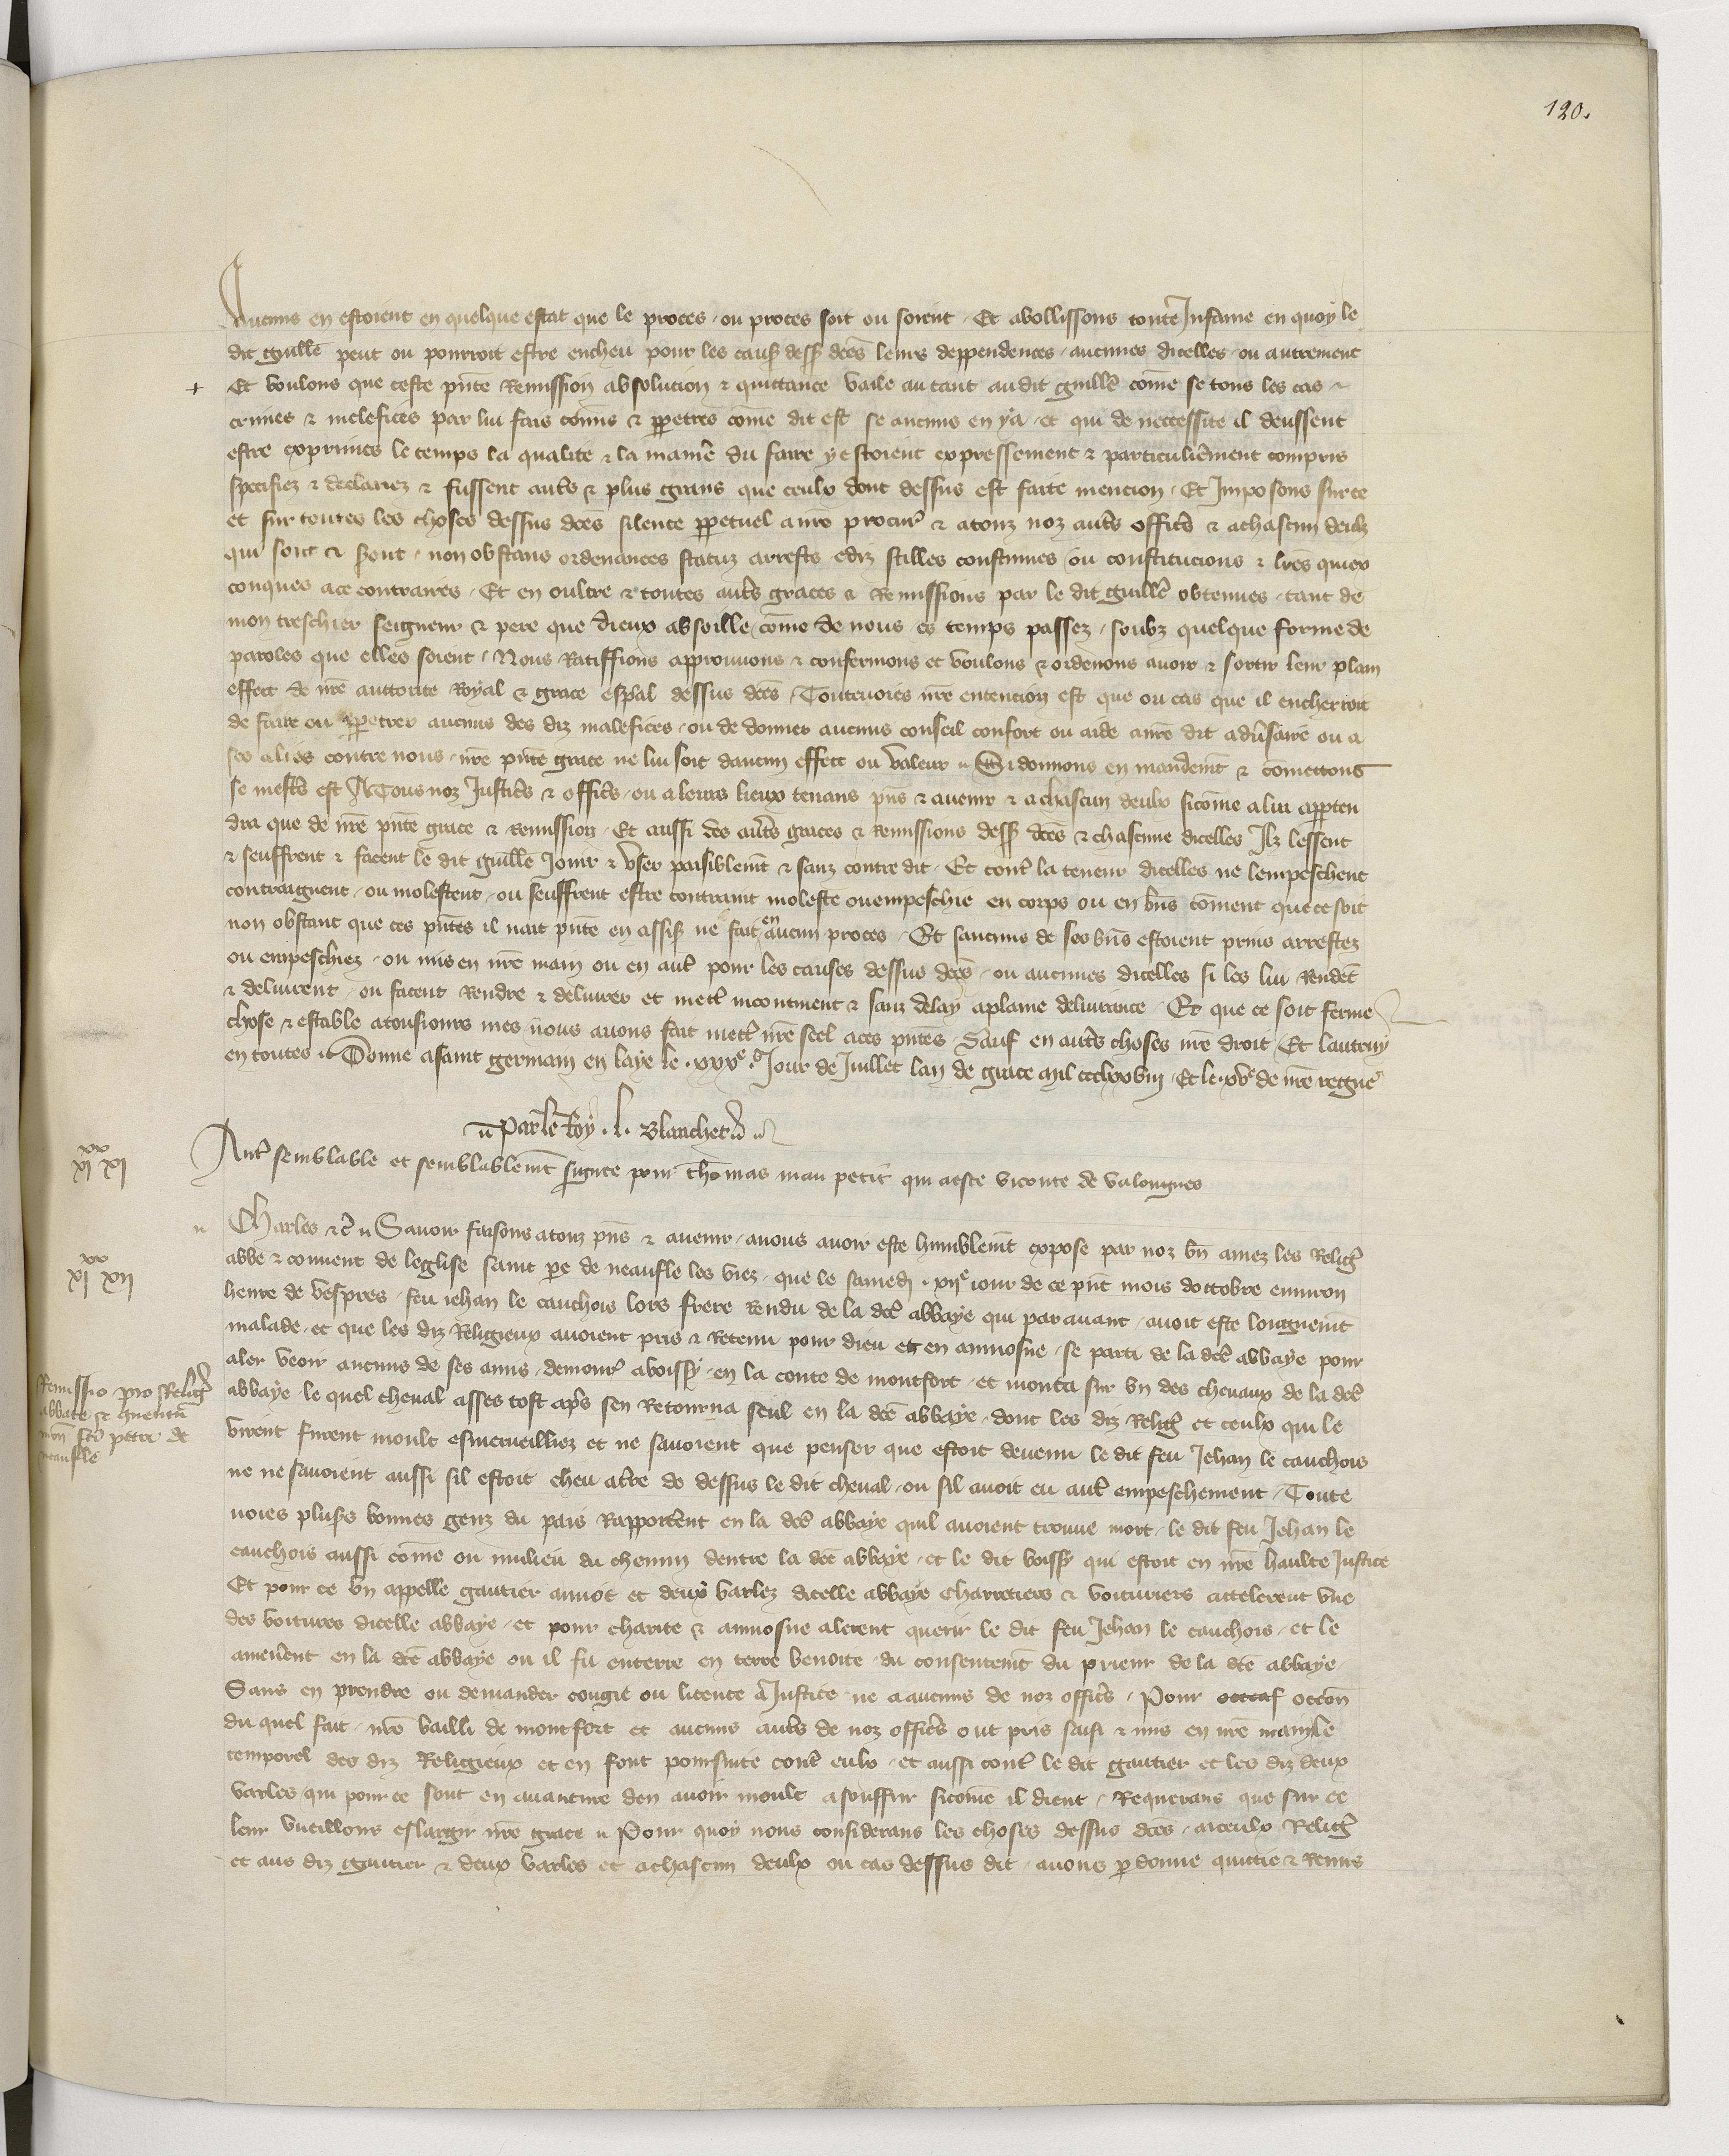 120.
Aucuns en estoient en quelque estat que le proces ou proces soit ou soient Et abollissons toute Infame en quoy le
dit guille peut ou pourroit estre encheu pour les caus dess dces leurs deppendences aucunes dicelles ou autrement
+ Et voulons que ceste pnte Remission absolucion & quittance vaile autant audit guille come se tous les cas
crimes & malefices par lui fais comis & ppetres come dit est se aucuns en y a et qui de neccessite il deussent
estre exprimes le temps la qualite & la maniere du faire y estoient expressement & particulierment compris
specifiez & declairez & fussent auts & plus grans que ceulx dont dessus est faite mencion Et Imposons sur ce
et sur toutes les choses dessus dces silence ppetuel a nre procur & a touz noz auts offics & a chascun deulz
qui sont & seront non obstans ordenances statuz arrests ediz stilles coustumes ou constitucions & lres quiex
conques a ce contraires Et en oultre & toutes auts graces & Remissions par le dit guille obtenues tant de
mon treschier seigneur & pere que dieux absoille come de nous es temps passez soubz quelque forme de
paroles que elles soient Nous Ratiffions approuvons & confermons et voulons & ordenons avoir & sortir leur plain
effect de nre auttorite Royal & grace espal dessus dces Toutevoies nre entencion est que ou cas que il encherroit
de faire ou ppetrer aucuns des diz malefices ou de donner aucuns conseil confort ou aide a nre dit adversaire ou a
ses alies contre nous nre pnte grace ne lui soit daucun effect ou valeur Si donnons en mandemt & comettons
se mests est A Tous noz Justics & offics ou a leurs lieux tenans pns & avenir & a chascun deulx sicome a lui apparten
dra que de nre pnte grace & Remission Et aussi des auts graces & Remissions dess dces & chascune dicelles Ilz lessent
& seuffrent & facent le dit guille Jouir & user paisiblemt & sanz contredit Et cont la teneur dicelles ne lempeschent
contraignent ou molestent ou seuffrent estre contraint moleste ou empeschie en corps ou en bns coment que ce soit
non obstant que ces pntes il nait pnte en assis ne fait en aucun proces Et saucuns de ses bns estoient prins arrestez
ou empeschiez ou mis en nre main ou en aut pour les causes dessus dces ou aucunes dicelles si les lui Rendet
& delivrent ou facent Rendre & delivrer et mett incontinent & sanz delay a plaine delivrance Et que ce soit ferme
chose & estable a tousiours mes nous avons fait mett nre seel a ces pntes Sauf en auts choses nre droit Et lautruy
en toutes Donne a saint germain en laye le xxxe Jour de Juillet lan de grace mil ccclxxviii Et le xve de nre regne
Par le Roy L Blanchet
xx
xi xi
Aut semblable et semblablemt signee pour thomas mau petit qui a este viconte de valongnes
Charles &c Savoir faisons a touz pns & avenir a nous avoir este humblemt expose par noz bn amez les Relig
xx
xi xii
abbe & couvent de leglise saint pe de neaufle les viez que le samedi xiie iour de ce pnt mois doctobre environ
heure de vespres feu iehan le cauchois lors frere Rendu de la dce abbaye qui paravant avoit este longuemt
malade et que les diz Religieux avoient pris & Retenu pour dieu et en aumosne se parti de la dce abbaye pour
aler veoir aucuns de ses amis demour a boissy en la conte de montfort et monta sur un des chevaux de la dce
Remissio pro Relig
abbate & conventu
mon sci petri de
neaufle
abbaye le quel cheval asses tost aps sen Retourna seul en la dce abbaye dont les diz Relig et ceulx qui le
virent furent moult esmerveilliez et ne savoient que penser que estoit devenu le dit feu Jehan le cauchois
ne ne savoient aussi sil estoit cheu a tre de dessus le dit cheval ou sil avoit eu aut empeschement Toute
voies pluss bonnes genz du pais Rapporterent en la dce abbaye quil avoient trouve mort le dit feu Jehan le
cauchois aussi come ou milieu du chemin dentre la dce abbaye et le dit boissy qui estoit en nre haulte Justice
Et pour ce un appelle gautier amiot et deux varlez dicelle abbaye charretiers & voituriers attelerent une
des voitures dicelle abbaye et pour charite & aumosne alerent querir le dit feu Jehan le cauchois et le
amenerent en la dce abbaye ou il fu enterre en terre benoite du consentemt du prieur de la dce abbaye
Sans en prendre ou demander congie ou licence a Justice ne a aucuns de noz offics Pour occon
du quel fait nre bailli de montfort et aucuns auts de noz offics ont pris saisi & mis en nre main le
temporel des diz Religieux et en font poursuite cont eulx et aussi cont le dit gautier et les diz deux
varles qui pour ce sont en avanture den avoir moult a souffrir sicome il dient Requerans que sur ce
leur vueillons eslargir nre grace Pour quoy nous considerans les choses dessus dces a iceulx Relig
et aus diz gautier & deux varles et a chascun deulx ou cas dessus dit avons pdonne quittie & Remis